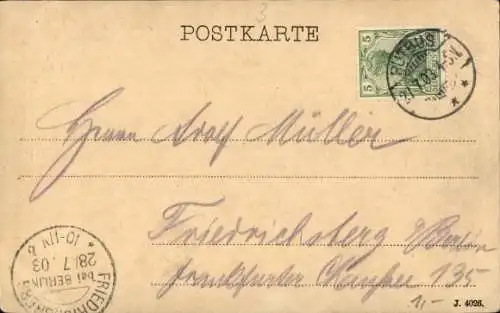 3
POSTKARTE
5 5
PUTBUS
21.7.03. 4-5N.
Herrn Adolf Müller
Friedrichsberg b/Berlin
Frankfurter Chaussee 135
FRIEDRICHSBERG
bei BERLIN
28.7.03
10-11N
b
11-
J. 4026.